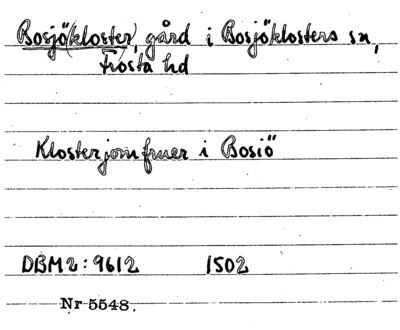 Bosjö(kloster), gård i Bosjöklosters sn,
Frosta hd
Klosterjomfruer i Bosiö
DBM2:9612 1502
Nr 5548.